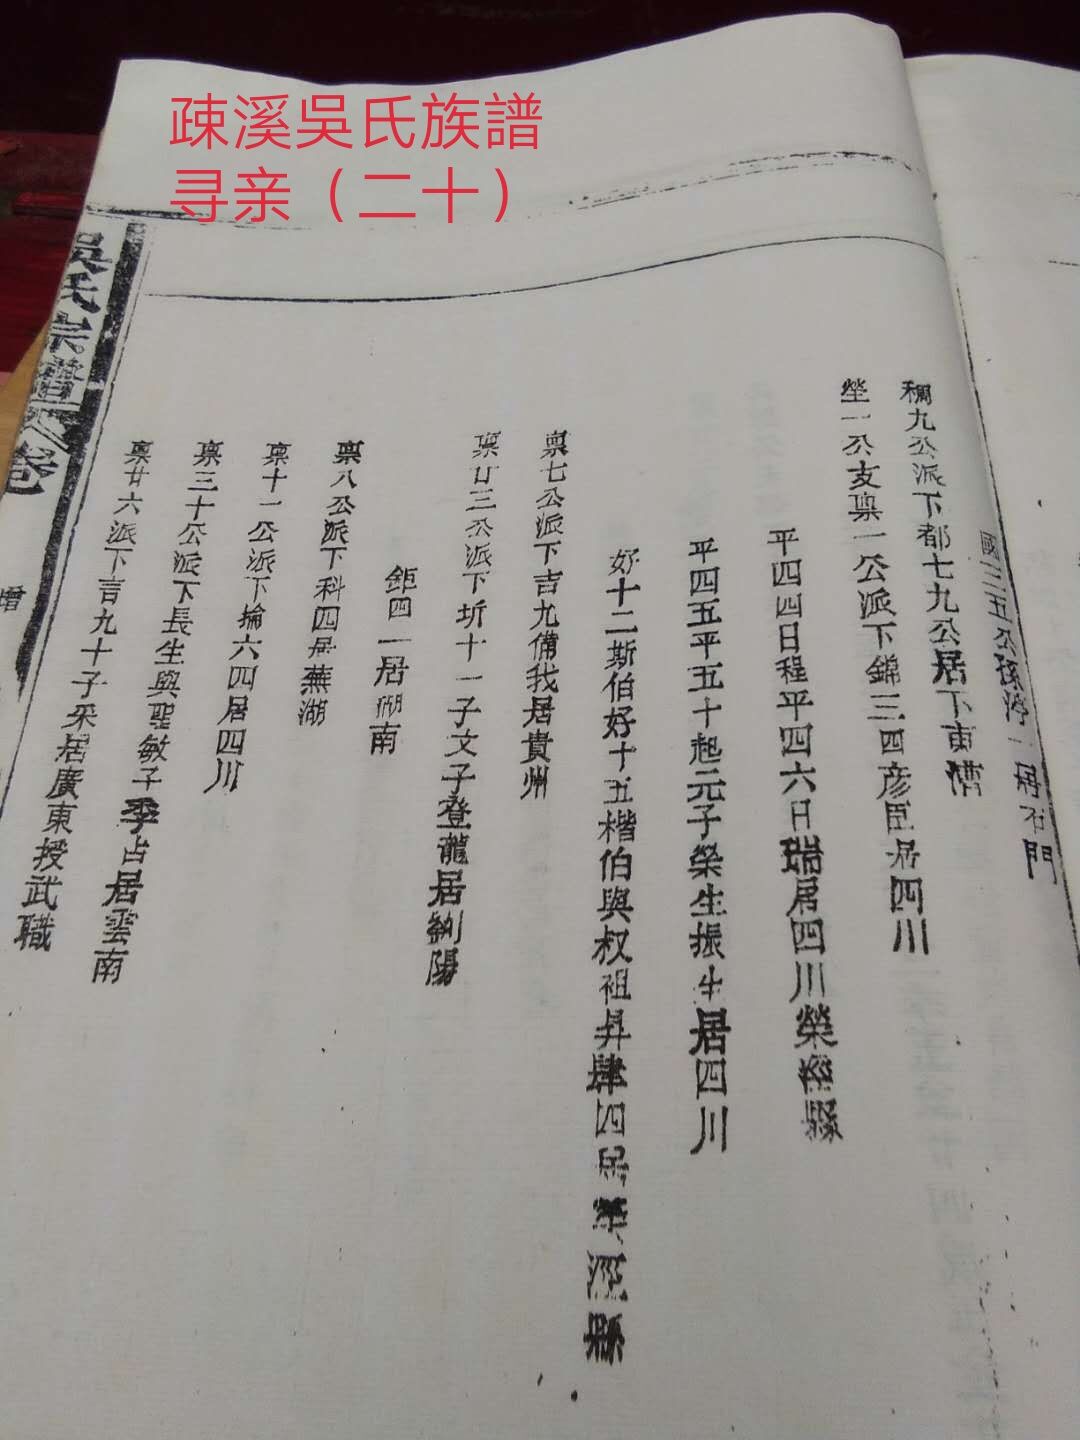 疎溪吳氏族譜
寻亲（二十）
國三五公孫婷一居石門
稠九公派下都七九公居下東漕
瑩一公支稟一公派下錦三四彦臣居四川
平四四日程平四六日瑞居四川榮經縣
平四五平五十起元子榮生振生居四川
好十二斯伯好十五楷伯與叔祖昇肆四居榮涇縣
稟七公派下吉九備我居貴州
稟廿三公派下圻十一子文子登龍居劉陽
鉅四一居湖南
稟八公派下科四居蕪湖
稟十一公派下掄六四居四川
稟三十公派下長生與聖敏子季占居雲南
稟廿六派下言九十子采居廣東授武職
吳氏宗譜 卷
增